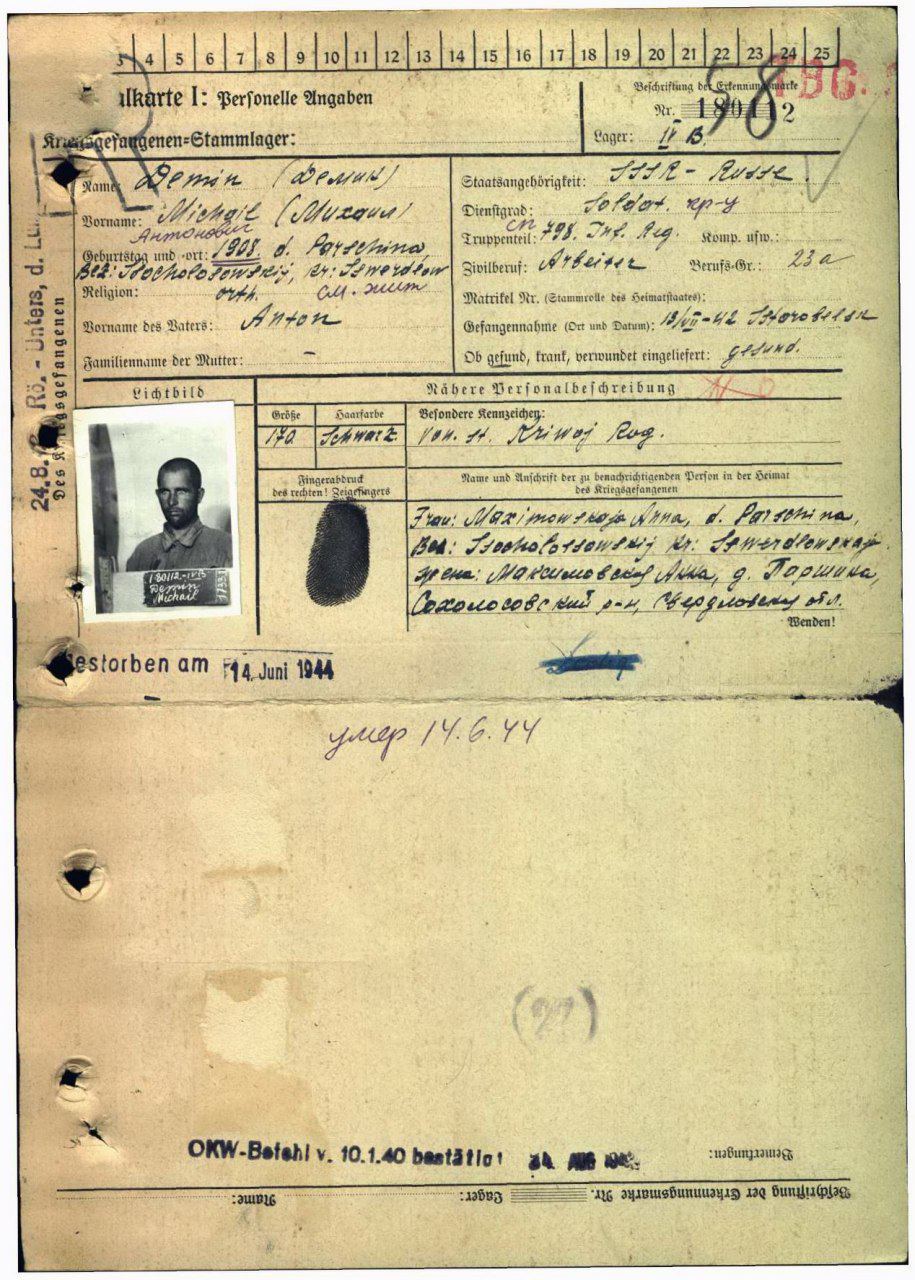 3 4 5 6 7 8 9 10 11 12 13 14 15 16 17 18 19 20 21 22 23 24 25
TBG.
58
alkarte I: Personelle Angaben
Beschriftung der Erkennungsmarke
Nr. 180112
Kriegsgefangenen-Stammlager:
Lager: IV B
Name: Demin (Демин)
Vorname: Michail (Михаил)
Антонович
Geburtstag und -ort: 1908 d. Parschina,
Bez: Ssocholossowskij, kr: Sswerdlow
Religion: orth.
Vorname des Vaters: Anton
Familienname der Mutter: –
Staatsangehörigkeit: SSSR - Russe.
Dienstgrad: Soldat. кр-ц
сп
Truppenteil: 798. Inf. Reg. Komp. usw.:
Zivilberuf: Arbeiter Berufs-Gr.: 23a
Matrikel Nr. (Stammrolle des Heimatstaates):
Gefangennahme (Ort und Datum): 13/VII-42 Starobelsk
Ob gesund, krank, verwundet eingeliefert: gesund.
24.8. Rö.- Unters, d. Lu
Des Kriegsgefangenen
Lichtbild
Nähere Personalbeschreibung
Größe Haarfarbe Besondere Kennzeichen:
170 Schwarz. Von. st. Kriwoj Rog.
Fingerabdruck
des rechten! Zeigefingers
Name und Anschrift der zu benachrichtigenden Person in der Heimat
des Kriegsgefangenen
Frau: Maximowskaja Anna, d. Parschina,
Bez: Ssocholossowskij kr: Sswerdlowskaja
жена: Максимовская Анна, д. Паршина,
Сохолосовский р-н, Свердловская обл.
Wenden!
180112-IVB
Demin
Michail
Gestorben am 14. Juni 1944
умер 14.6.44
(27)
OKW-Befehl v. 10.1.40 bestätigt AUG
Bemerkungen:
Beschriftung der Erkennungsmarke Nr. Lager: Name: